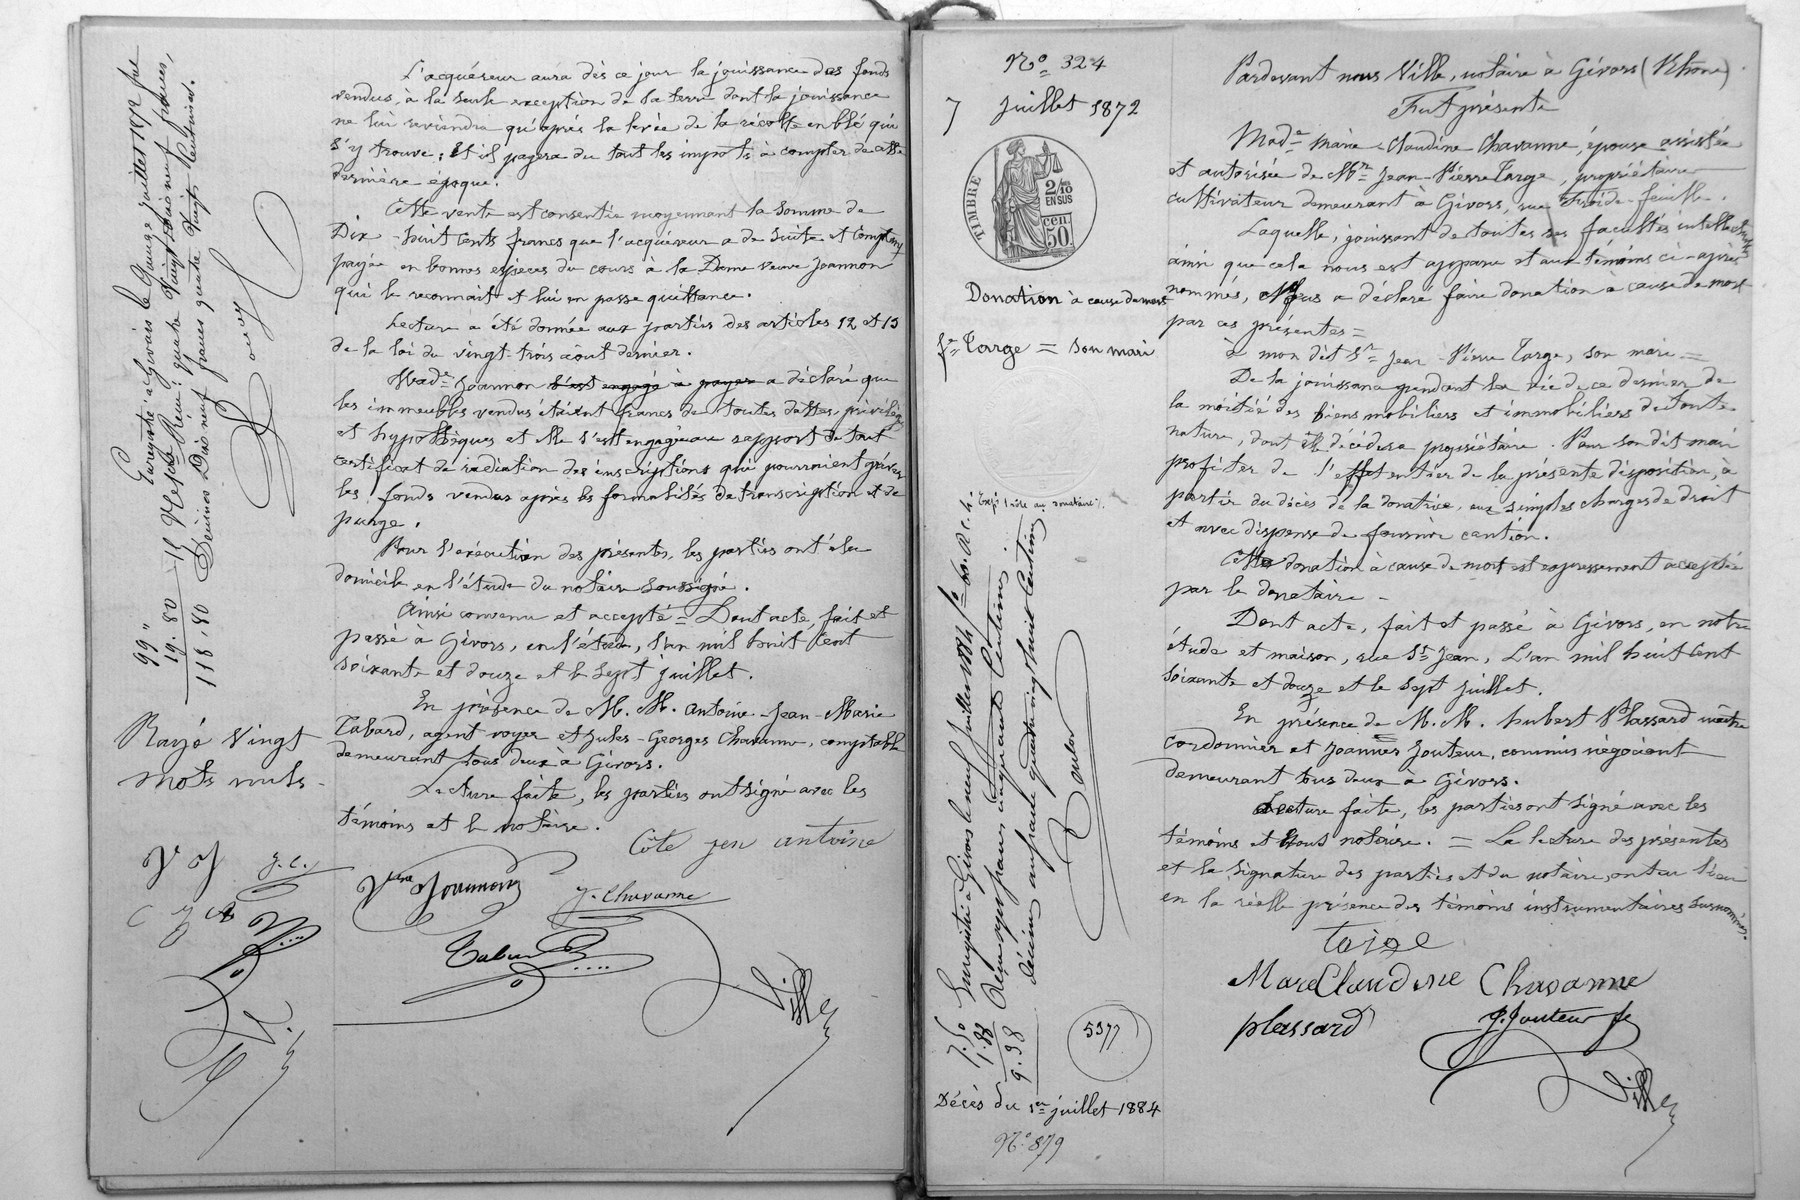 L'acquéreur aura dès ce jour la jouissance des fonds
vendus, à la seule exception de la terre dont la jouissance
ne lui reviendra qu'après la levée de la récolte en blé qui
s'y trouve ; Et il payera du tout les impots à compter de cette
dernière époque.
Cette vente est consentie moyennant la somme de
Dix-huit cents francs que l'acquéreur a de suite et comptant
payée en bonnes espèces du cours à la Dame veuve Joannon
qui le reconnait et lui en passe quittance.
Lecture a été donnée aux parties des articles 12 et 13
de la loi du vingt trois août dernier.
Made Joannon s'est engagé à payer a déclaré que
les immeubles vendus étaient francs de toutes dettes, privilèges
et hypothèques et elle s'est engagée au rapport de tout
certificat de radiation des inscriptions qui pourraient grever
les fonds vendus après les formalités de transcription et de
purge.
Pour l'exécution des présentes, les parties ont élu
domicile en l'étude du notaire soussigné.
Ainsi convenu et accepté = Dont acte, fait et
passé à Givors, en l'étude, l'an mil huit cent
soixante et douze et le sept juillet.
En présence de M. M. Antoine-Jean-Marie
Tabard, agent voyer et Jules-Georges Chavanne, comptable
demeurant tous deux à Givors.
Lecture faite, les parties ont signé avec les
témoins et le notaire.
Côte jen antoine
Vve Joannon
J. Chavanne
Tabard
Ville
Enregistré à Givors le
juillet 1872
quatre Vingt dix neuf francs,
Décimes Dix neuf francs quatre Vingts Centimes.
99"
19.80
118.80
Rayé vingt
mots nuls -
V J
J. C.
C J A
No 324
7 Juillet 1872
TIMBRE
2/10
EN SUS
50
cen.
Donation à cause de mort
fe Targe = son mari
Expé 1 rôle au donataire
Enregistré à Givors le neuf Juillet 1884 fo 60. R. c. 4.
Reçu sept francs cinquante Centimes
décimes un franc quatre vingt huit Centimes
7.50
1.88
9.38
5377
Décès du 1er juillet 1884
No 879
Pardevant nous Ville, notaire à Givors (Rhône)
Fut présente
Made Marie-Claudine Chavanne, épouse assistée
et autorisée de Mr Jean-Pierre Targe, propriétaire
cultivateur demeurant à Givors, rue Froide-feuille.
Laquelle, jouissant de toutes ses facultés intellectuelles
ainsi que cela nous est apparu et aux témoins ci-après
nommés, Nous a déclaré faire donation à cause de mort
par ces présentes =
à mon dit Sr Jean-Pierre Targe, son mari =
De la jouissance pendant la vie de ce dernier de
la moitié des biens mobiliers et immobiliers de toute
nature, dont elle décèdera propriétaire. Pour son dit mari
profiter de l'effet entier de la présente disposition, à
partir du décès de la donatrice, aux simples charges de droit
et avec dispense de fournir caution.
Cette donation à cause de mort est expressement acceptée
par le donataire -
Dont acte, fait et passé à Givors, en notre
étude et maison, rue St Jean, L'an mil huit cent
soixante et douze et le sept juillet.
En présence de M. M. hubert Plassard maître
cordonnier et Joannes Jouteur, commis négociant
demeurant tous deux à Givors.
Lecture faite, les parties ont signé avec les
témoins et nous notaire. = La lecture des présentes
et la signature des parties et du notaire, ont eu lieu
en la réelle présence des témoins instrumentaires susnommés.
targe
Marie Claudine Chavanne
plassard
J. Jouteur
Ville